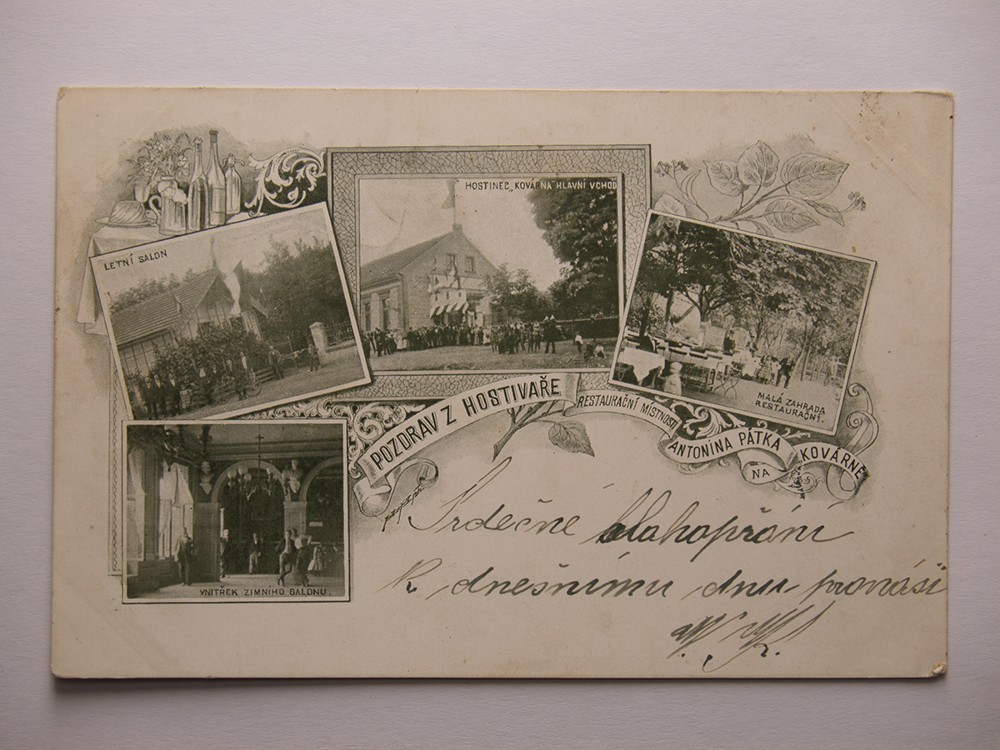 HOSTINEC „KOVÁRNA“ HLAVNÍ VCHOD
LETNÍ SALON
MALÁ ZAHRADA
RESTAURAČNÍ.
POZDRAV Z HOSTIVAŘE
RESTAURAČNÍ MÍSTNOSTI
ANTONÍNA PÁTKA
NA
KOVÁRNĚ
VNITŘEK ZIMNÍHO SALONU.
Srdečné blahopřání
k dnešnímu dnu pronáší